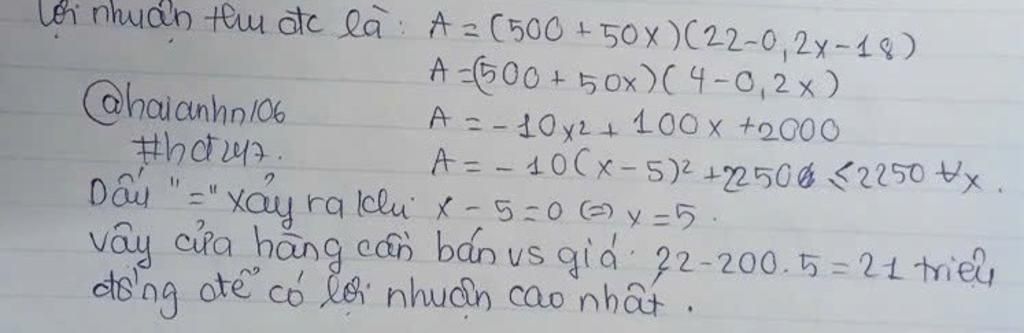 lợi nhuận thu đc là: A = (500 + 50x)(22-0,2x-18)
A=(500 + 50x)(4-0,2x)
@haianhn106
A = -10x2 + 100x +2000
#hđ247.
A = -10(x-5)2 +2250 ≤ 2250 ∀x.
Dấu "=" xảy ra khi x - 5 = 0 (=) x = 5.
vậy cửa hàng cần bán vs giá: 22-200.5 = 21 triệu
đồng để có lợi nhuận cao nhất.